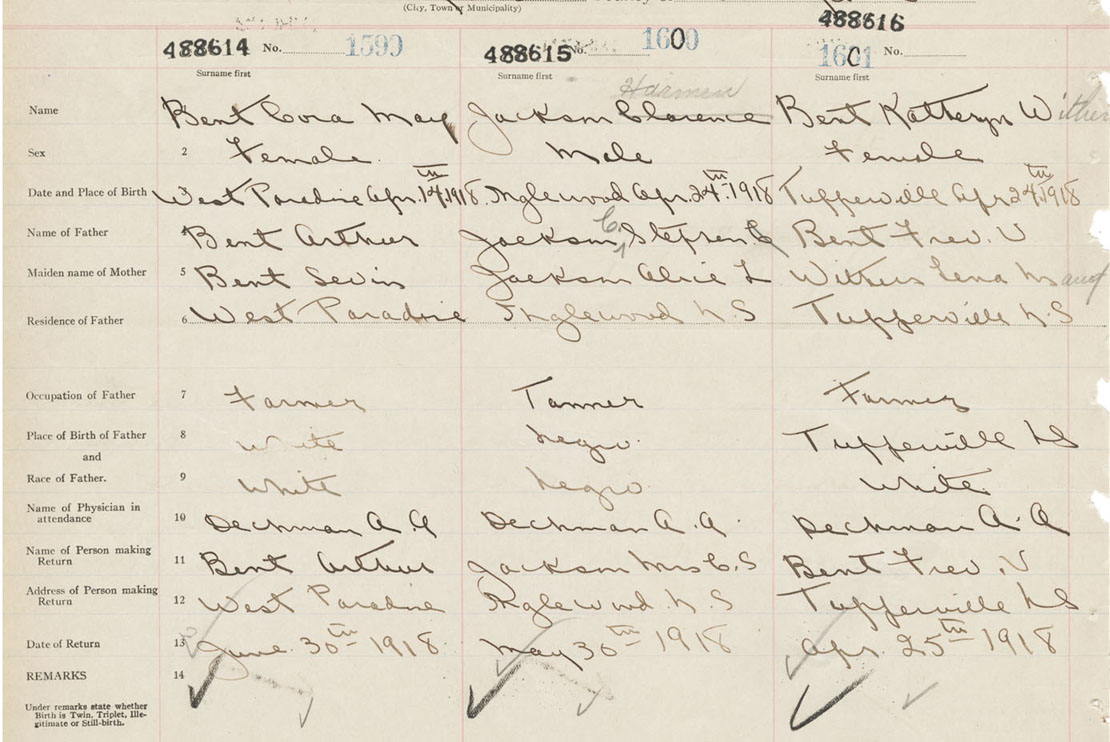 (City, Town or Municipality)
488614 No. 1599
488615 No. 1600
488616
1601 No.
Surname first Surname first Surname first
Harmen
Name Bent Cora May Jackson Clarence Bent Katheryn Wither
Sex 2 Female. Male Female
Date and Place of Birth West Paradise Apr. 14th 1918. Inglewood Apr. 24th 1918 Tupperville Apr 24th 1918
Name of Father 4 Bent Arthur Jackson C. Stephen Bent Fred. V
Maiden name of Mother 5 Bent Jackson Alice L Withers Lena
Residence of Father 6 West Paradise Inglewood N.S Tupperville N.S
Occupation of Father 7 Farmer Tanner Farmer
Place of Birth of Father 8 White Negro. Tupperville NS
and
Race of Father. 9 White Negro White.
Name of Physician in
attendance 10 Deckman A. A Deckman A. A. Deckman A. A
Name of Person making
Return 11 Bent Arthur Jackson Mrs C. S Bent Fred. V
Address of Person making
Return 12 West Paradise Inglewood. N. S Tupperville NS
Date of Return 13 June. 30th 1918 May 30th 1918 Apr. 25th 1918
REMARKS 14
Under remarks state whether
Birth is Twin, Triplet, Ille-
gitimate or Still-birth.